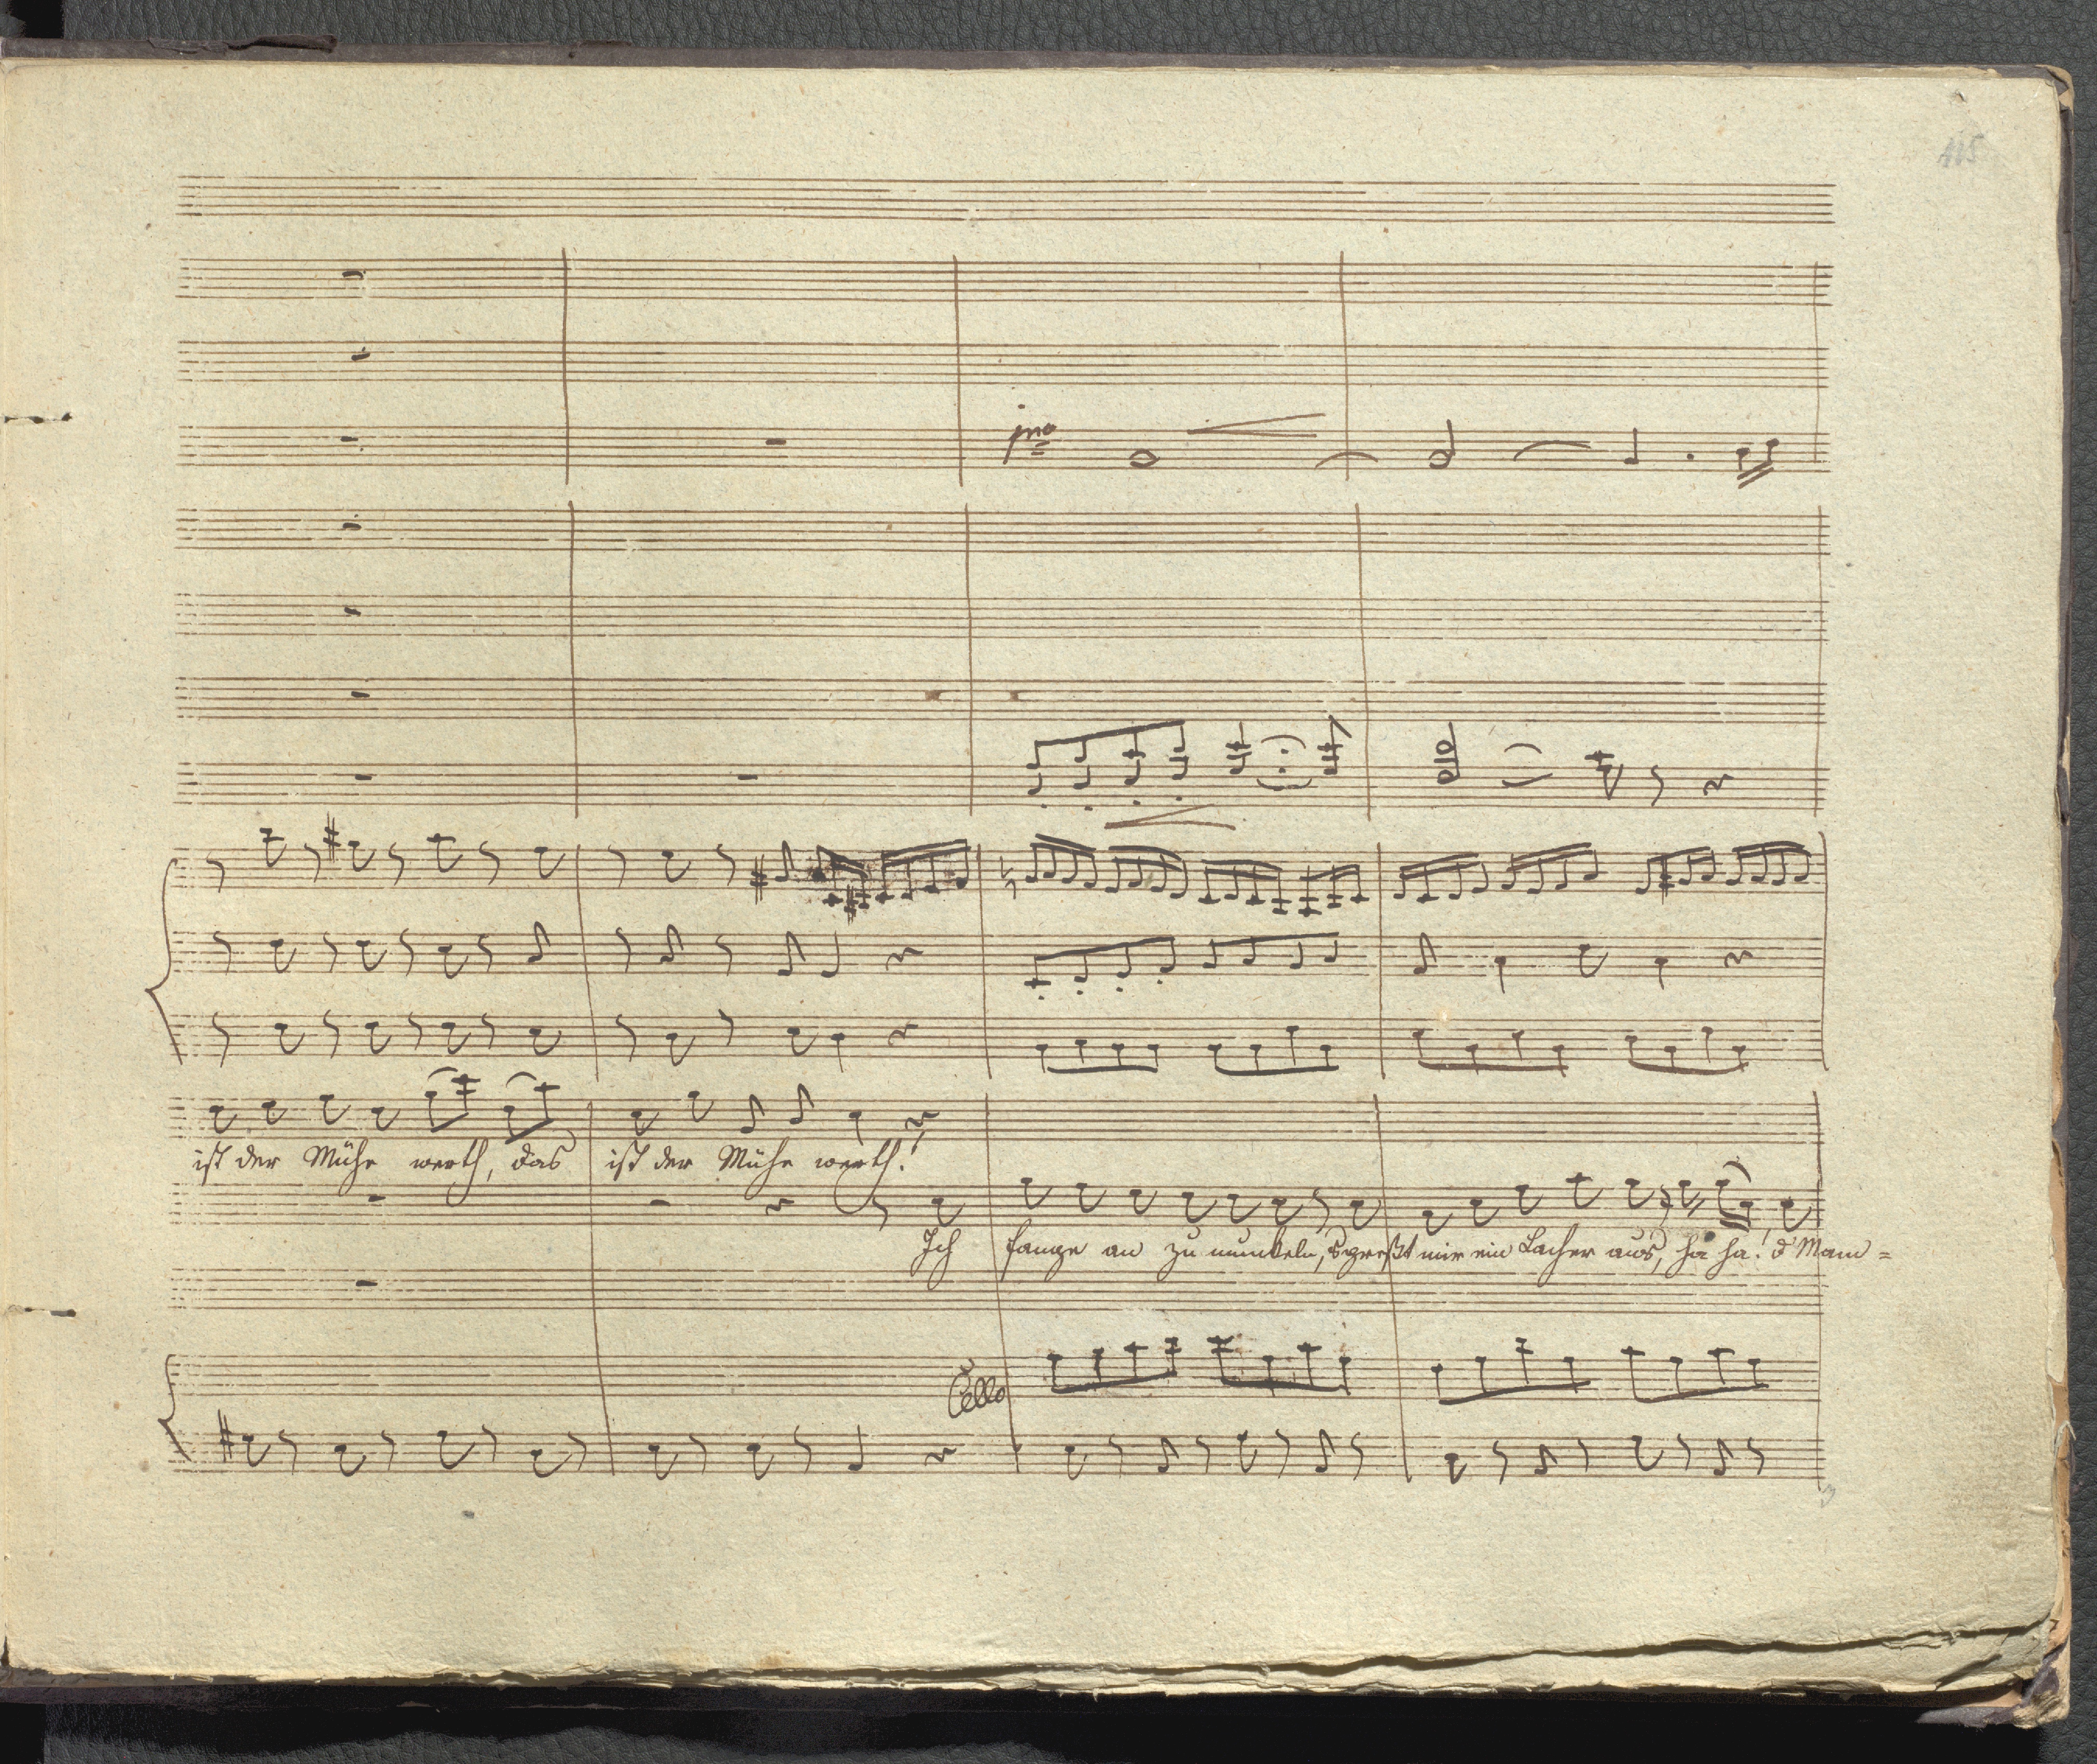 115
pmo
ist der Mühe werth, das ist der Mühe werth!
Ich fange an zu munkeln, mir ein Lacher aus, ha ha! d'Mam=
Cello